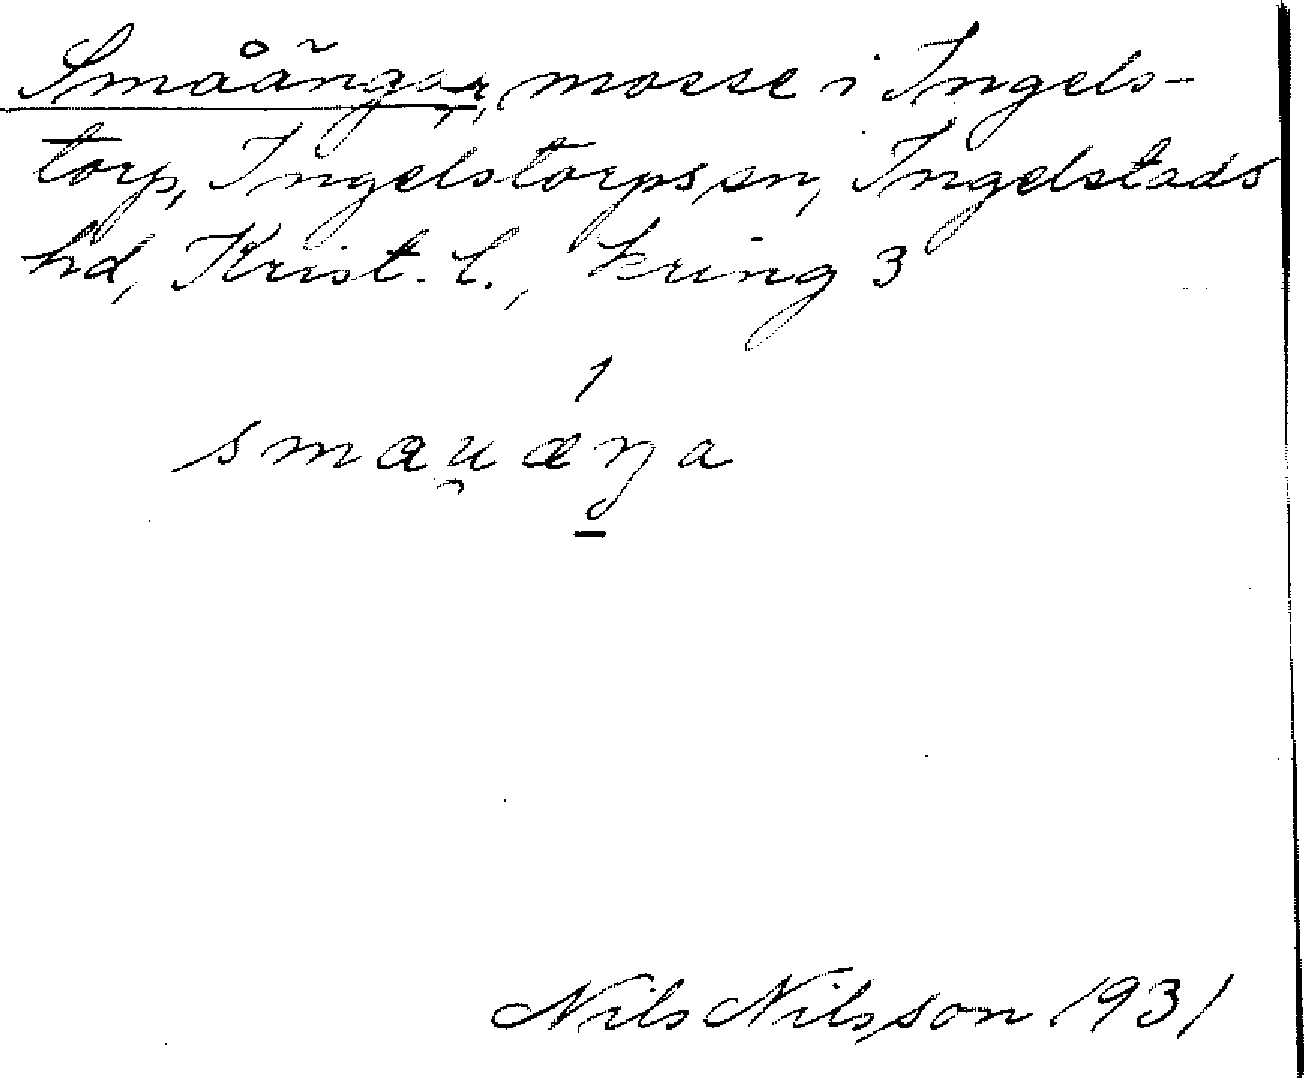 Småängar, mosse i Ingels-
torp, Ingelstorps sn, Ingelstads
hd, Krist. l., kring 3
smau̯æŋa
Nils Nilsson 1931